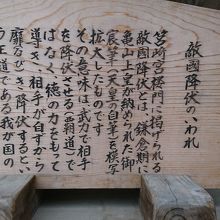 敵國降伏のいわれ
筥崎宮楼門に掲げられる
敵國降伏は、鎌倉期に
亀山上皇が納められた御
宸筆(天皇の自筆)を模写
拡大したものです。
その意味は武力で相手
を降伏させる(覇道)で
はなく、徳の力をもって
導き、相手が自ずから
靡き降伏するとい
う王道である我が国の